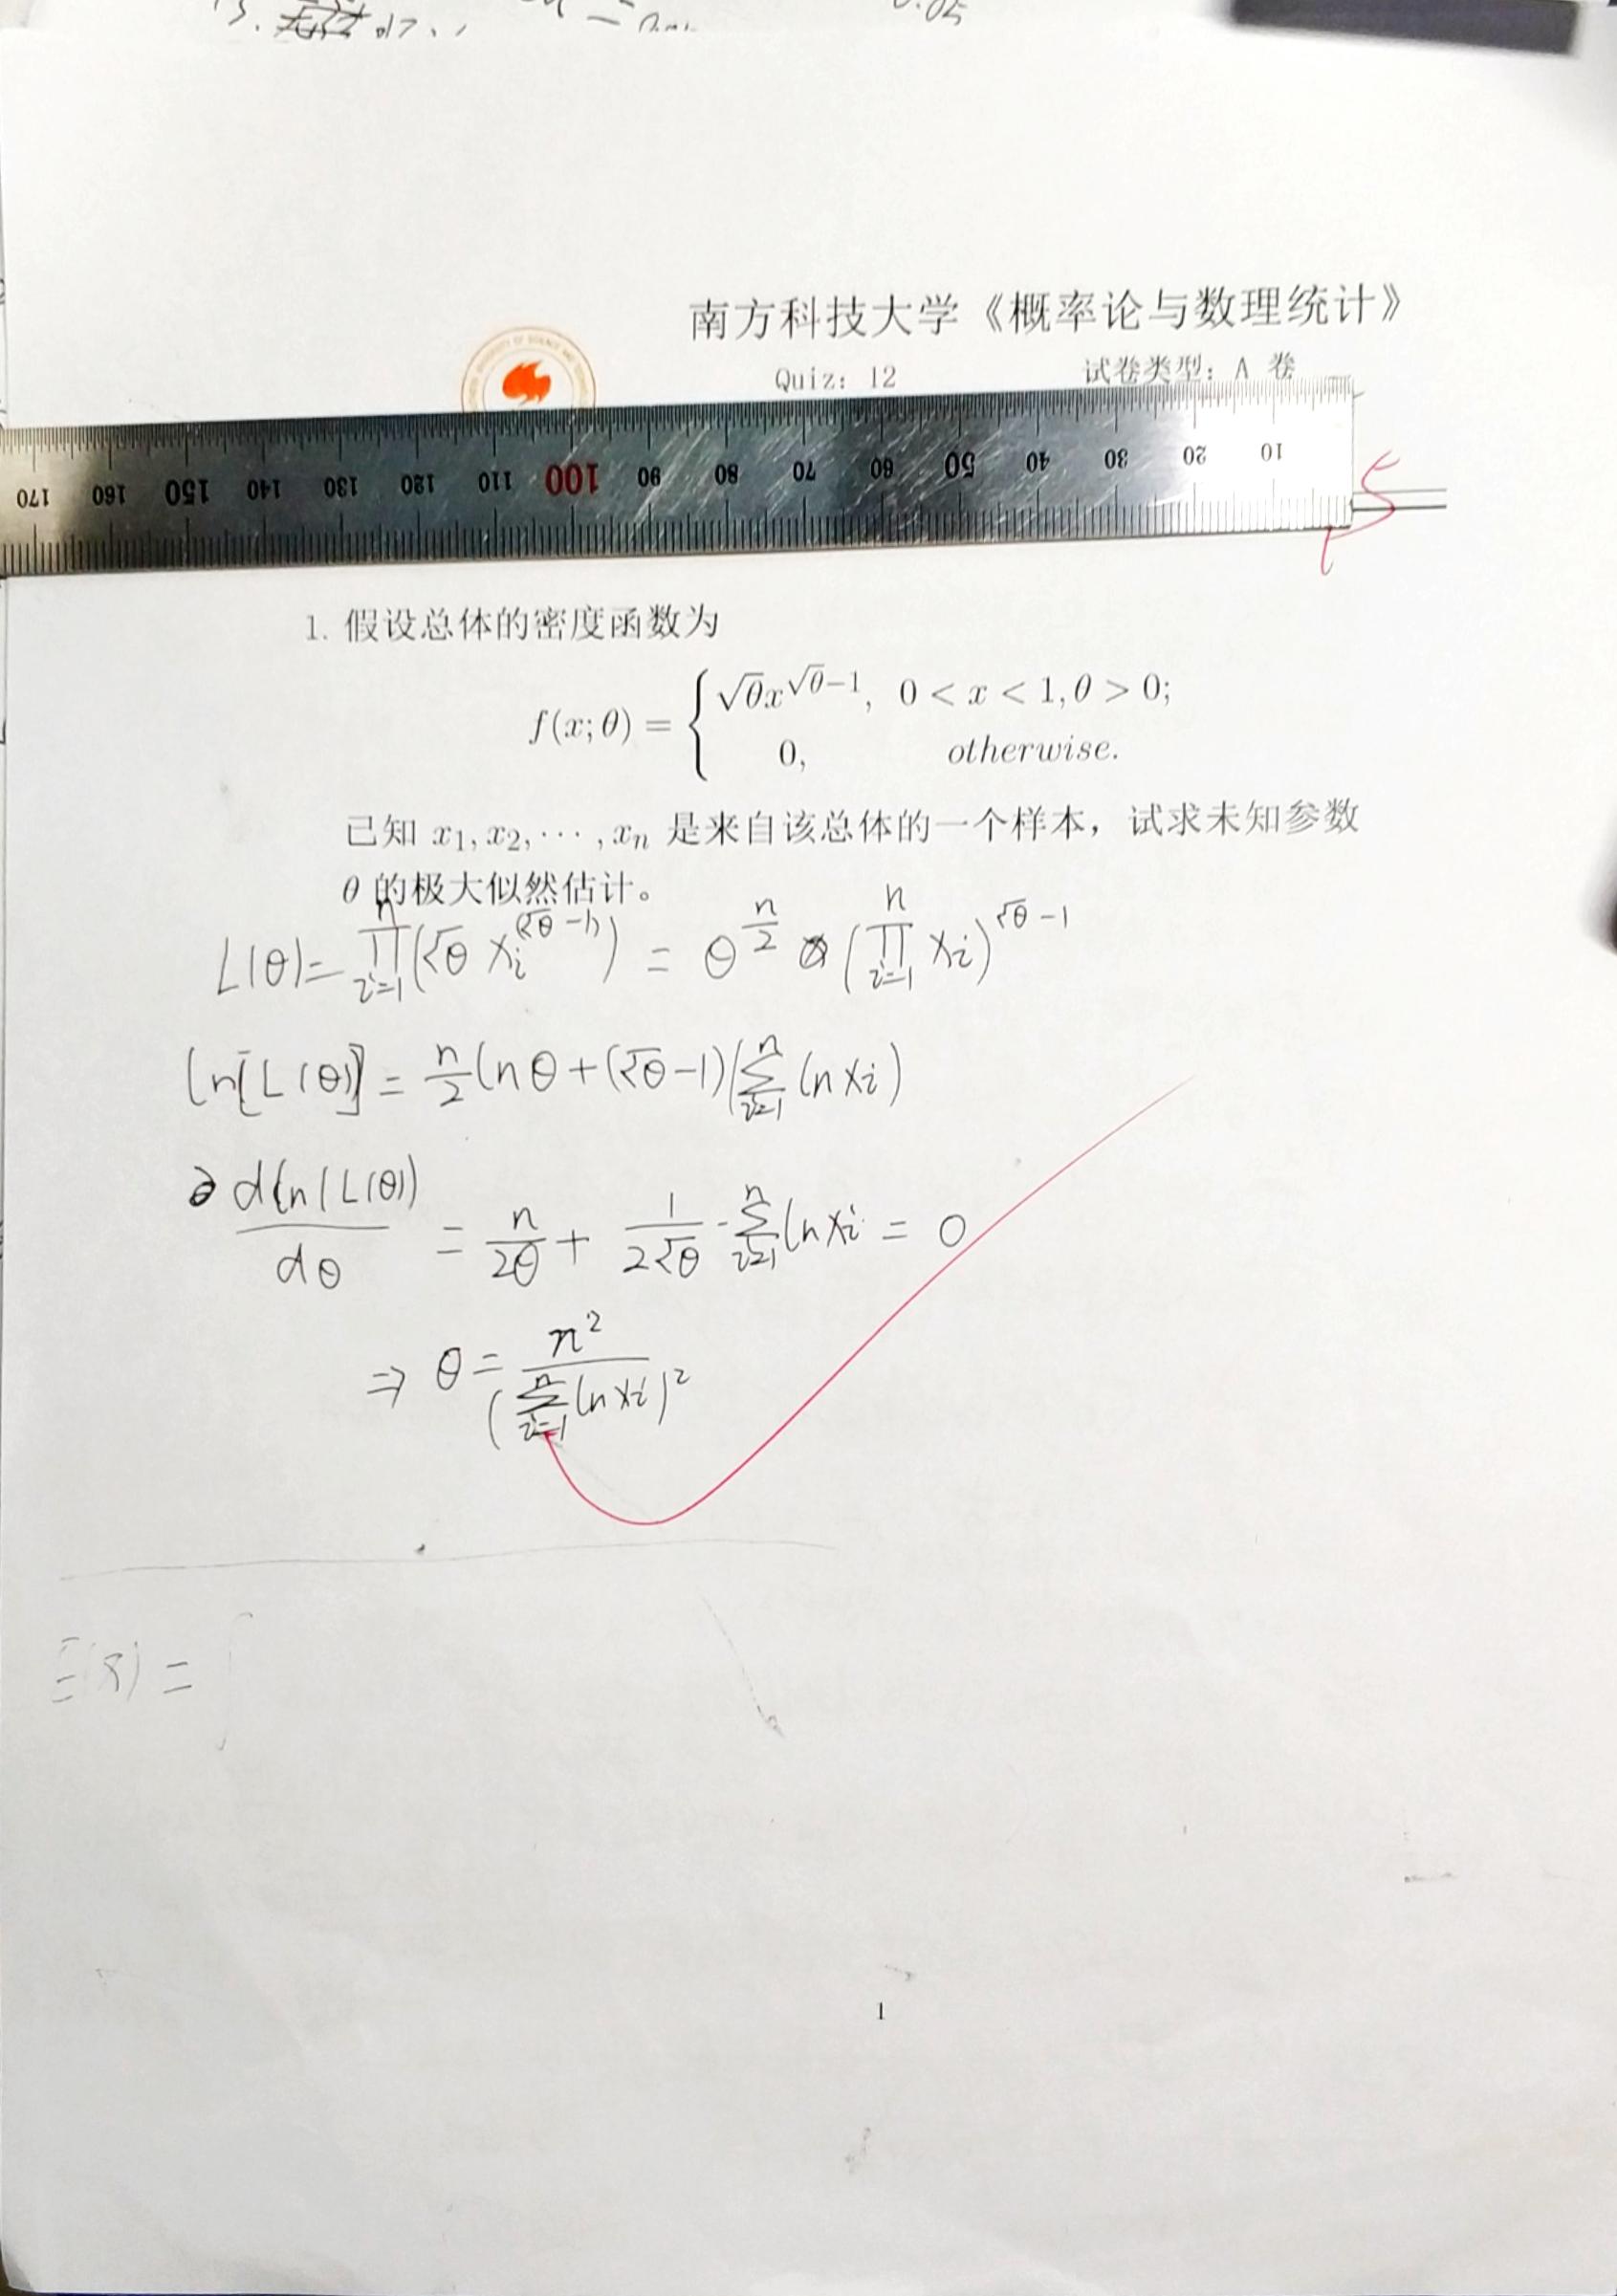 0.05
南方科技大学《概率论与数理统计》
Quiz: 12 试卷类型: A 卷
170 160 150 140 130 120 110 100 90 80 70 60 50 40 30 20 10
5
1. 假设总体的密度函数为
f(x; θ) = { √θx^{√θ−1}, 0 < x < 1, θ > 0;
0, otherwise.
已知 x₁, x₂, ⋯ , xₙ 是来自该总体的一个样本，试求未知参数
θ 的极大似然估计。
L(θ) = ∏_{i=1}^{n} (√θ x_i^{(√θ−1)}) = θ^{n/2} (∏_{i=1}^{n} x_i)^{√θ−1}
ln[L(θ)] = n/2 ln θ + (√θ−1)(∑_{i=1}^{n} ln x_i)
d ln(L(θ))/dθ = n/(2θ) + 1/(2√θ) · ∑_{i=1}^{n} ln x_i = 0
⇒ θ = n²/(∑_{i=1}^{n} ln x_i)²
E(X) = ∫
1